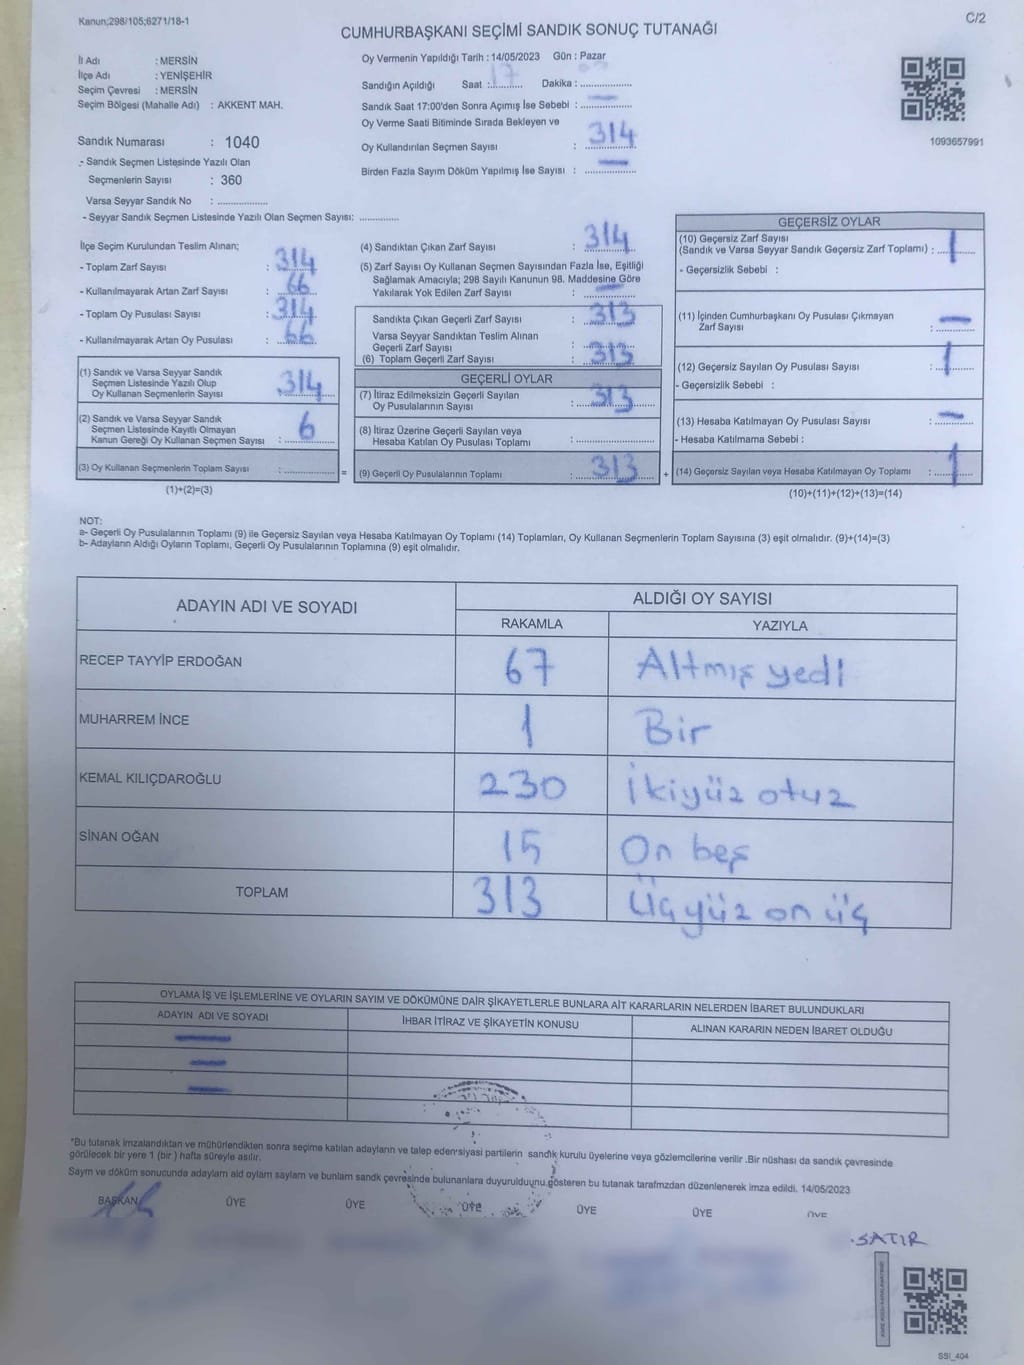 Kanun;298/105;6271/18-1
C/2
CUMHURBAŞKANI SEÇİMİ SANDIK SONUÇ TUTANAĞI
İl Adı : MERSİN
İlçe Adı : YENİŞEHİR
Seçim Çevresi : MERSİN
Seçim Bölgesi (Mahalle Adı) : AKKENT MAH.
Oy Vermenin Yapıldığı Tarih : 14/05/2023 Gün : Pazar
Sandığın Açıldığı Saat : 17 Dakika :
Sandık Saat 17:00'den Sonra Açımış İse Sebebi : —
Oy Verme Saati Bitiminde Sırada Bekleyen ve
Oy Kullandırılan Seçmen Sayısı : 314
Birden Fazla Sayım Döküm Yapılmış İse Sayısı : —
1093657991
Sandık Numarası : 1040
- Sandık Seçmen Listesinde Yazılı Olan
Seçmenlerin Sayısı : 360
Varsa Seyyar Sandık No :
- Seyyar Sandık Seçmen Listesinde Yazılı Olan Seçmen Sayısı:
İlçe Seçim Kurulundan Teslim Alınan;
- Toplam Zarf Sayısı : 314
- Kullanılmayarak Artan Zarf Sayısı : 66
- Toplam Oy Pusulası Sayısı : 314
- Kullanılmayarak Artan Oy Pusulası : 66
(1) Sandık ve Varsa Seyyar Sandık
Seçmen Listesinde Yazılı Olup
Oy Kullanan Seçmenlerin Sayısı : 314
(2) Sandık ve Varsa Seyyar Sandık
Seçmen Listesinde Kayıtlı Olmayan
Kanun Gereği Oy Kullanan Seçmen Sayısı : 6
(3) Oy Kullanan Seçmenlerin Toplam Sayısı : =
(1)+(2)=(3)
(4) Sandıktan Çıkan Zarf Sayısı : 314
(5) Zarf Sayısı Oy Kullanan Seçmen Sayısından Fazla İse, Eşitliği
Sağlamak Amacıyla; 298 Sayılı Kanunun 98. Maddesine Göre
Yakılarak Yok Edilen Zarf Sayısı : —
Sandıkta Çıkan Geçerli Zarf Sayısı : 313
Varsa Seyyar Sandıktan Teslim Alınan
Geçerli Zarf Sayısı :
(6) Toplam Geçerli Zarf Sayısı : 313
GEÇERLİ OYLAR
(7) İtiraz Edilmeksizin Geçerli Sayılan
Oy Pusulalarının Sayısı : 313
(8) İtiraz Üzerine Geçerli Sayılan veya
Hesaba Katılan Oy Pusulası Toplamı :
(9) Geçerli Oy Pusulalarının Toplamı : 313 +
GEÇERSİZ OYLAR
(10) Geçersiz Zarf Sayısı
(Sandık ve Varsa Seyyar Sandık Geçersiz Zarf Toplamı) : 1
- Geçersizlik Sebebi :
(11) İçinden Cumhurbaşkanı Oy Pusulası Çıkmayan
Zarf Sayısı : —
(12) Geçersiz Sayılan Oy Pusulası Sayısı : 1
- Geçersizlik Sebebi :
(13) Hesaba Katılmayan Oy Pusulası Sayısı : —
- Hesaba Katılmama Sebebi :
(14) Geçersiz Sayılan veya Hesaba Katılmayan Oy Toplamı : 1
(10)+(11)+(12)+(13)=(14)
NOT:
a- Geçerli Oy Pusulalarının Toplamı (9) ile Geçersiz Sayılan veya Hesaba Katılmayan Oy Toplamı (14) Toplamları, Oy Kullanan Seçmenlerin Toplam Sayısına (3) eşit olmalıdır. (9)+(14)=(3)
b- Adayların Aldığı Oyların Toplamı, Geçerli Oy Pusulalarının Toplamına (9) eşit olmalıdır.
ADAYIN ADI VE SOYADI
ALDIĞI OY SAYISI
RAKAMLA YAZIYLA
RECEP TAYYİP ERDOĞAN 67 Altmış yedi
MUHARREM İNCE 1 Bir
KEMAL KILIÇDAROĞLU 230 İkiyüz otuz
SİNAN OĞAN 15 On beş
TOPLAM 313 Üçyüz on üç
OYLAMA İŞ VE İŞLEMLERİNE VE OYLARIN SAYIM VE DÖKÜMÜNE DAİR ŞİKAYETLERLE BUNLARA AİT KARARLARIN NELERDEN İBARET BULUNDUKLARI
ADAYIN ADI VE SOYADI İHBAR İTİRAZ VE ŞİKAYETİN KONUSU ALINAN KARARIN NEDEN İBARET OLDUĞU
*Bu tutanak imzalandıktan ve mühürlendikten sonra seçime katılan adayların ve talep eden siyasi partilerin sandık kurulu üyelerine veya gözlemcilerine verilir .Bir nüshası da sandık çevresinde
görülecek bir yere 1 (bir ) hafta süreyle asılır.
Sayım ve döküm sonucunda adayların ald oyların sayları ve bunların sandk çevresinde bulunanlara duyurulduğunu gösteren bu tutanak tarafmzdan düzenlenerek imza edildi. 14/05/2023
BAŞKAN ÜYE ÜYE ÜYE ÜYE ÜYE ÜYE
SATIR
SSI_404